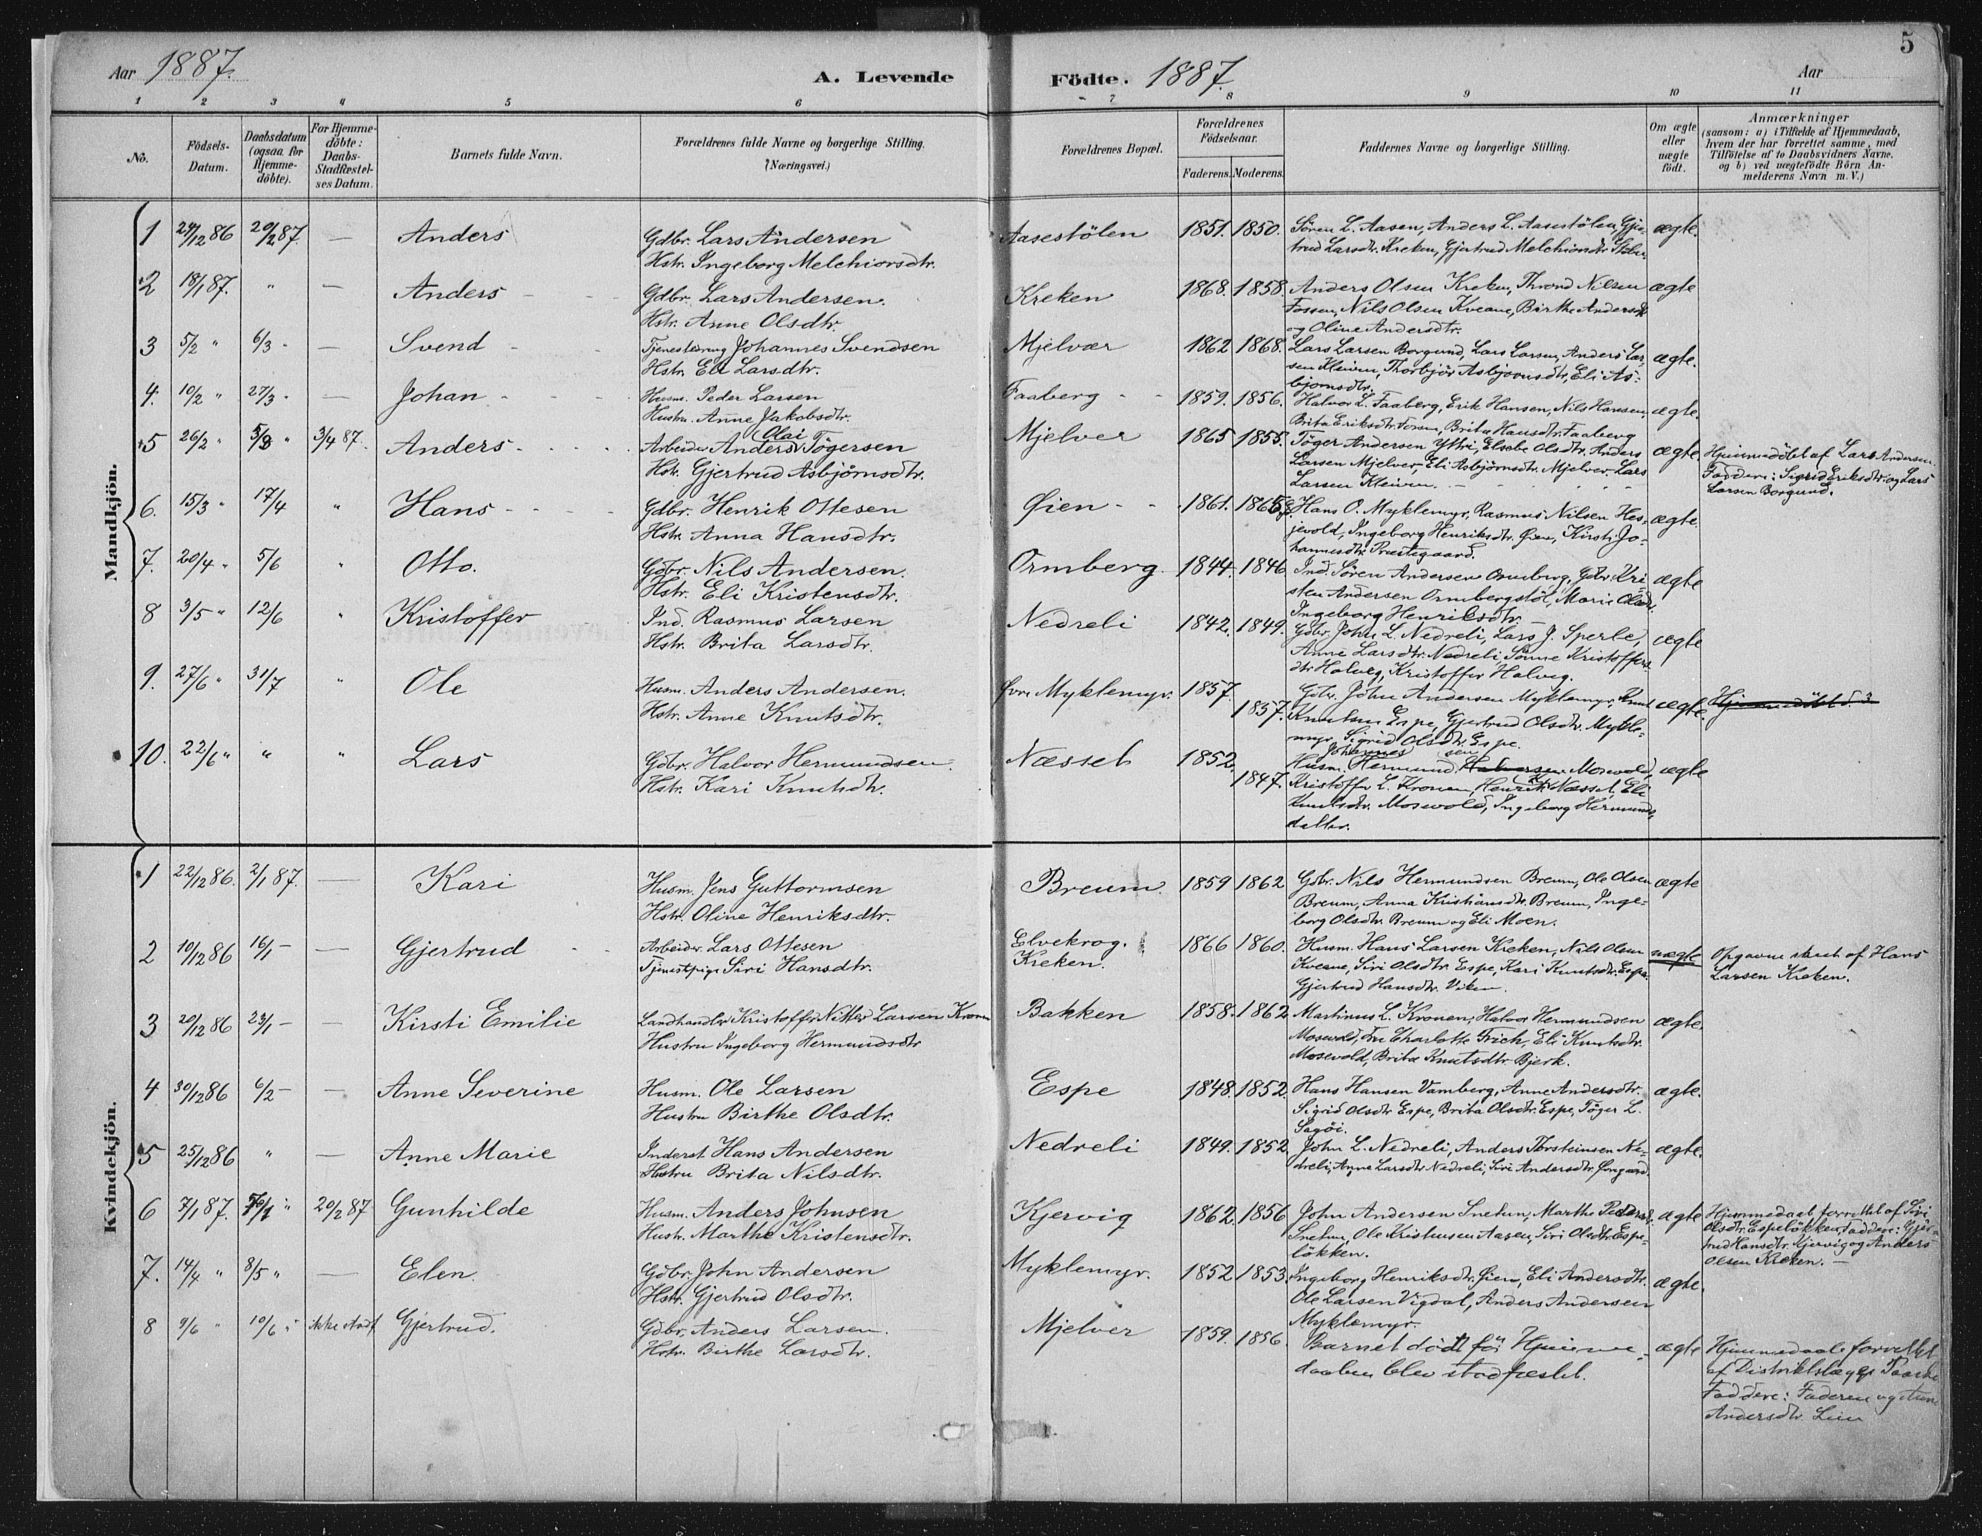 Aar 1887. A. Levende Födte. 1887. Aar 5
1 2 3 4 5 6 7 8 9 10 11
No. Födsels-Datum. Daabsdatum (ogsaa for Hjemme-döbte). For Hjemme-döbte: Daabs-Stadfæstel-ses Datum. Barnets fulde Navn. Forældrenes fulde Navne og borgerlige Stilling. (Næringsvei.) Forældrenes Bopæl. Forældrenes Födselsaar. Faderens. Moderens. Faddernes Navne og borgerlige Stilling. Om ægte eller uægte födt. Anmærkninger (saasom: a) i Tilfælde af Hjemmedaab, hvem der har forrettet samme, med Tilföielse af to Daabsvidners Navne, og b) ved uægtefödte Börn Anmelderens Navn m. V.)
Mandkjön.
1 24/12 86 20/2 87. — Anders Gdbr. Lars Andersen Aasestölen 1851. 1850. Sören L. Aasen, Anders L. Aasestölen, Gje- ægte.
Hstr. Ingeborg Melchiorsdtr. trud Larsdtr. Kreken, Gjertrud Melchiorsdtr.
2 18/1 87. " — Anders Gdbr. Lars Andersen. Kreken 1868. 1858 Anders Olsen Kreken, Thrond Nilsen ægte
Hstr. Anne Olsdtr. Fossen, Nils Olsen Kveane, Birthe Andersdtr
og Oline Andersdtr.
3 5/2 " 6/3 " — Svend Tjenestedreng Johannes Svendsen Mjelvær 1862 1868. Lars Larsen Borgund, Lars Larsen, Anders Lar- ægte.
Hstr. Eli Larsdtr. sen Kleiven, Thorbjör Asbjörnsdtr, Eli As-
björnsdtr.
4. 10/2 " 27/3 " — Johan Husm. Peder Larsen Faaberg 1859. 1856. Halvor L. Faaberg, Erik Hansen, Nils Hansen, ægte.
Hustru Anne Jakobsdtr. Brita Eriksdtr. Brita Hansdtr. Faaberg
5 26/2 " 5/3 " 3/4 87. Anders Arbeider Anders Olai Tögersen Mjelver 1865 1855. Töger Andersen Yttri, Elsebe Olsdtr. Anders ægte. Hjemmedöbt af Lars Andersen.
Hstr. Gjertrud Asbjörnsdtr. Larsen Mjelver, Eli Asbjörnsdtr. Mjelver, Lars Faddere: Sigrid Eriksdtr. og Lars
Larsen Kleiven. Larsen Borgund.
6. 15/3 " 17/4 " Hans Gdbr. Henrik Ottesen Øien 1861. Hans O. Myklemyr, Rasmus Nilsen Hes- ægte.
Hstr. Anna Hansdtr. jevold, Ingeborg Henriksdtr. Øien, Kirsti Jo-
hannesdtr. Præstegaard.
7. 20/4 " 5/6 " Otto. Gdbr. Nils Andersen. Ormberg. 1844. 1846 Ind. Sören Andersen Ormberg, Gdbr. Kri- ægte
Hstr. Eli Kristensdtr. sten Andersen Ormbergstöl, Marie Olsdtr.
Ingeborg Henriksdtr.
8 3/5 " 12/6 " Kristoffer Ind. Rasmus Larsen Nedreli 1842. 1849. Gdbr. John L. Nedreli, Lars J. Sperle, ægte
Hstr. Brita Larsdtr. Anne Larsdtr. Nedreli Sönne Kristoffers-
dtr Halveg, Kristoffer Halveg.
9. 27/6 " 31/7 " Ole Husm. Anders Andersen. Øvre Myklemyr. 1857. Gdbr. John Andersen Myklemyr, Knut ægte.
Hstr. Anne Knutsdtr. 1857. Knutsen Espe, Gjertrud Olsdtr. Mykle-
myr, Sigrid Olsdtr. Espe.
10. 22/6 " " " Lars Gdbr. Halvor Hermundsen. Næsset 1852. Husm. Hermund Johannessen Mosevold, ægte
Hstr. Kari Knutsdtr. 1847. Kristoffer L. Kronen, Henrik Næsset, Eli
Knutsdtr. Mosevold, Ingeborg Hermunds-
datter.
Kvindekjön.
1 22/12 86. 2/1 87. — Kari Husm. Jens Guttormsen Breum. 1859 1862 Gdbr. Nils Hermundsen Breum, Ole Olsen ægte
Hstr. Oline Henriksdtr. Breum, Anna Kristiansdtr. Breum, Inge-
borg Olsdtr. Breum og Eli Moen.
2 10/12 86 16/1 — — Gjertrud Arbeider. Lars Ottesen Elvekrog. 1866 1860. Husm. Hans Larsen Kreken, Nils Olsen uægte Opgavne skeet af Hans
Tjenestpige Siri Hansdtr. Kreken. Kveane, Siri Olsdtr. Espe, Kari Knutsdtr. Espe Larsen Kreken.
Gjertrud Hansdtr. Viken
3 20/12 86 23/1 — — Kirsti Emilie Landhandler Kristoffer Nitter Larsen Kronen Bakken 1858. 1862 Martinus L. Kronen, Halvor Hermundsen ægte.
Hustru Ingeborg Hermundsdtr Mosevold, Fru Charlotte Frich, Eli Knutsdtr.
Mosevold, Brita Knutsdtr. Bjerk.
4 30/12 86 6/2 — — Anne Severine Husm. Ole Larsen Espe 1848. 1852. Hans Hansen Vamberg, Anne Andersdtr. ægte.
Hustru Birthe Olsdtr. Sigrid Olsdtr. Espe, Brita Olsdtr. Espe, Töger L.
Sagöi.
5 25/12 86 " — Anne Marie Inderst Hans Andersen Nedreli 1849. 1852 John L. Nedreli, Anders Torsteinsen Ne- ægte.
Hustru Brita Nilsdtr. dreli, Anne Larsdtr. Nedreli, Siri Andersdtr.
6 7/1 87. 20/2 87 Gunhilde Husm. Anders Johnsen Kjervig 1862. 1856 John Andersen Snetun, Marthe Pedersd. ægte Hjemmedaab forrettet af Siri
Hustr. Marthe Kristensdtr. Snetun, Ole Kristensen Aasen, Siri Olsdtr. Espe- Olsdtr. Espelökken, Faddere: Gjer-
lökken. trud Hansdtr. Kjervig og Anders
Olsen Kreken. —
7. 14/4 " 8/5 " — Elen. Gdbr. John Andersen Myklemyr. 1852 1853. Ingeborg Henriksdtr. Øien, Eli Andersdtr. ægte.
Hstr. Gjertrud Olsdtr. Ole Larsen Vigdal, Anders Andersen
Myklemyr.
8 9/6 " 10/6 " ikke stadf Gjertrud. Gdbr. Anders Larsen. Mjelver 1859. 1856. Barnet dödt för Hjemme- ægte Hjemmedaab forrettet
Hstr. Birthe Larsdtr. daaben blev stadfæstet. af Distriktslæge
Faddere: Faderen og
Andersdtr. Lien